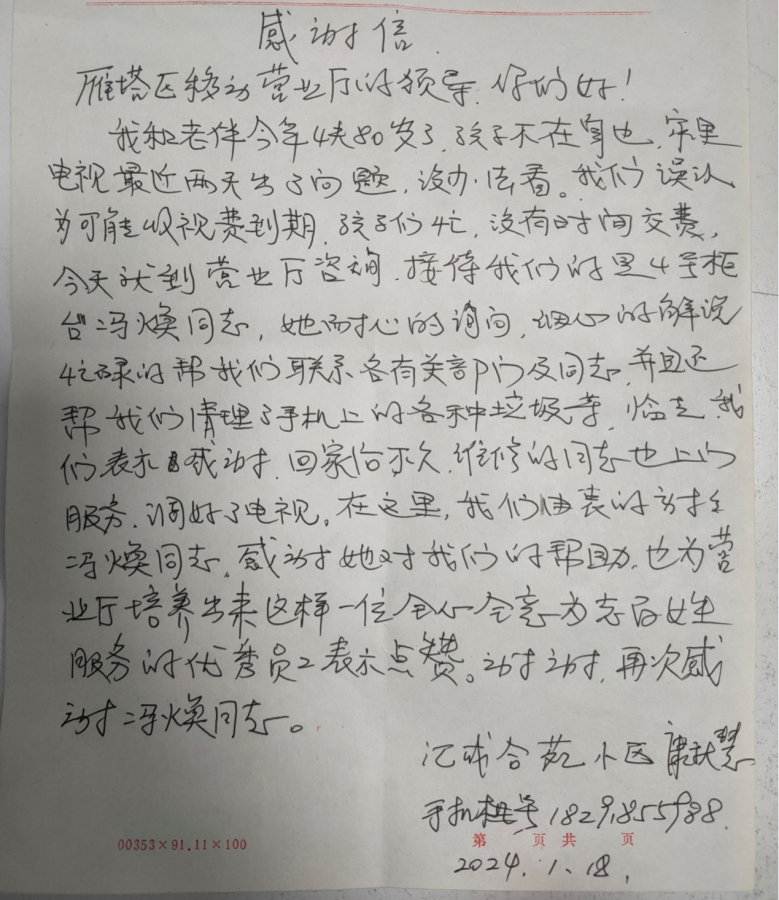 感谢信
雁塔区移动营业厅的领导.你们好!
我和老伴今年快80岁了,孩子不在身边,家里
电视最近两天出了问题,没办法看。我们误认
为可能收视费到期,孩子们忙,没有时间交费,
今天就到营业厅咨询,接待我们的是4号柜
台冯焕同志,她耐心的询问,细心的解说
忙碌的帮我们联系各有关部门及同志,并且还
帮我们清理了手机上的各种垃圾等,临走,我
们表示感谢,回家后不久,维修的同志也上门
服务,调好了电视。在这里,我们由衷的谢谢
冯焕同志,感谢她对我们的帮助,也为营
业厅培养出来这样一位全心全意为老百姓
服务的优秀员工表示点赞。谢谢,再次感
谢冯焕同志。
小区康秋慧
手机号18291855988.
00353×91.11×100
第 页 共 页
2024.1.18.